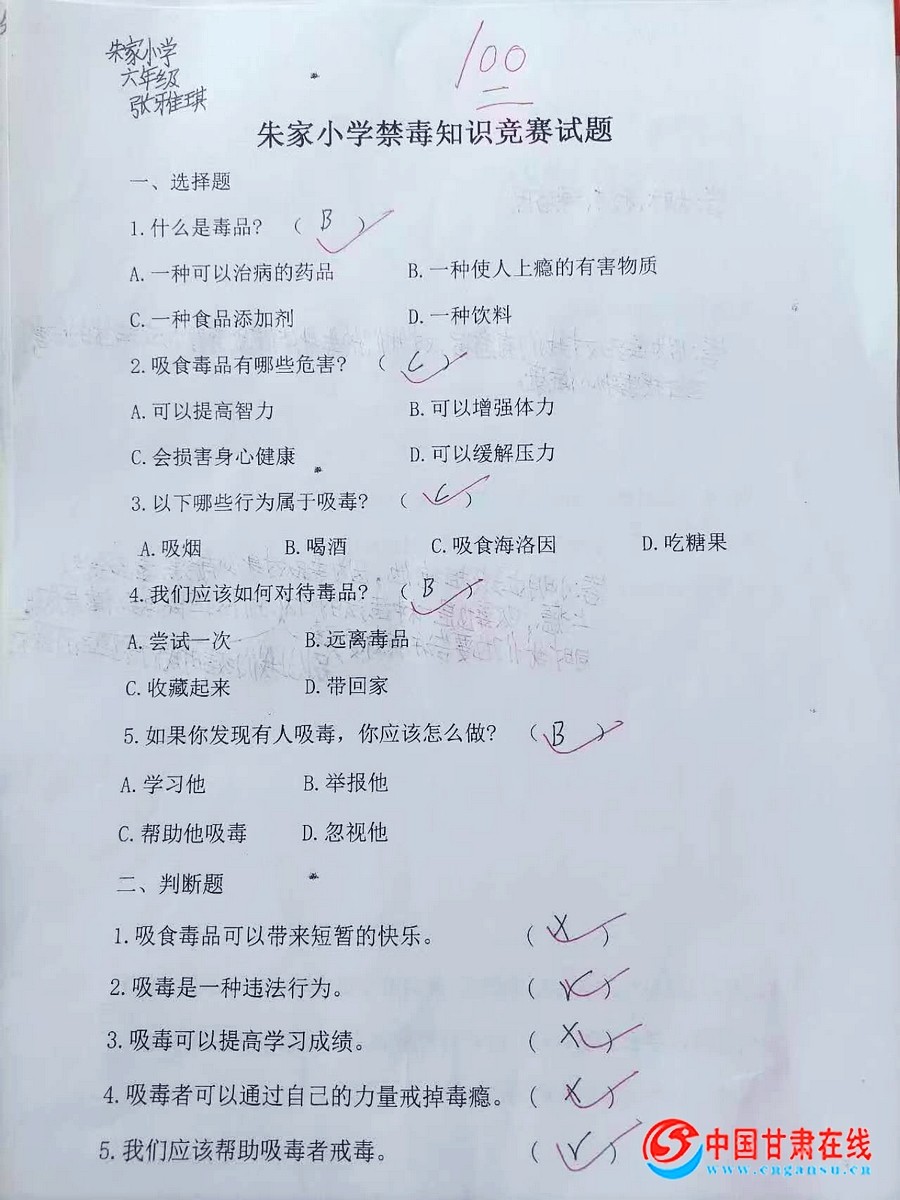 朱家小学
六年级
张雅琪
100
朱家小学禁毒知识竞赛试题
一、选择题
1.什么是毒品? ( B )
A.一种可以治病的药品 B.一种使人上瘾的有害物质
C.一种食品添加剂 D.一种饮料
2.吸食毒品有哪些危害? ( C )
A.可以提高智力 B.可以增强体力
C.会损害身心健康 D.可以缓解压力
3.以下哪些行为属于吸毒? ( C )
A.吸烟 B.喝酒 C.吸食海洛因 D.吃糖果
4.我们应该如何对待毒品? ( B )
A.尝试一次 B.远离毒品
C.收藏起来 D.带回家
5.如果你发现有人吸毒，你应该怎么做? ( B )
A.学习他 B.举报他
C.帮助他吸毒 D.忽视他
二、判断题
1.吸食毒品可以带来短暂的快乐。 ( X )
2.吸毒是一种违法行为。 ( √ )
3.吸毒可以提高学习成绩。 ( X )
4.吸毒者可以通过自己的力量戒掉毒瘾。 ( X )
5.我们应该帮助吸毒者戒毒。 ( √ )
中国甘肃在线
www.cngansu.cn